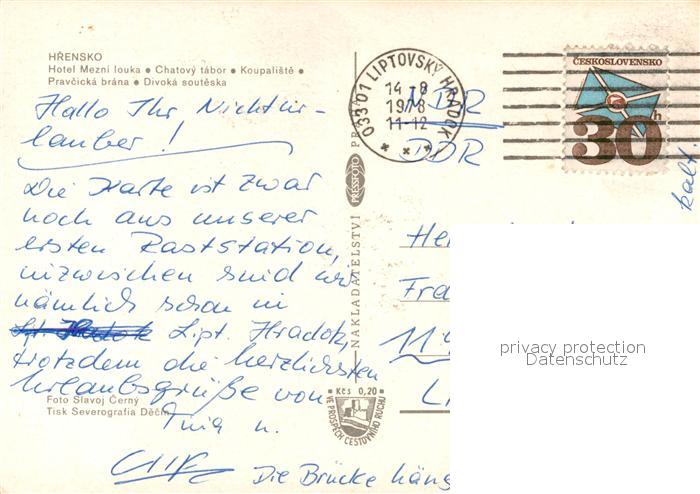 HŘENSKO
Hotel Mezní louka ● Chatový tábor ● Koupaliště ●
Pravčická brána ● Divoká soutěska
Hallo Ihr, Nichtur-
lauber!
Die Karte ist zwar
noch aus unserer
ersten Raststation,
inzwischen sind wir
nämlich schon in
Lipt. Hradok,
trotzdem die herzlichsten
Urlaubsgrüße von
u.
Die Brücke häng
Foto Slavoj Černý
Tisk Severografia Děčín
NAKLADATELSTVÍ PRESSFOTO PRAHA
Kčs 0,20
VE PROSPĚCH CESTOVNÍHO RUCHU
033 01 LIPTOVSKÝ HRÁDOK 1
14 8
1978
11-12
ČESKOSLOVENSKO
30h
DDR
kalt.
He
Fra
11
L
privacy protection
Datenschutz